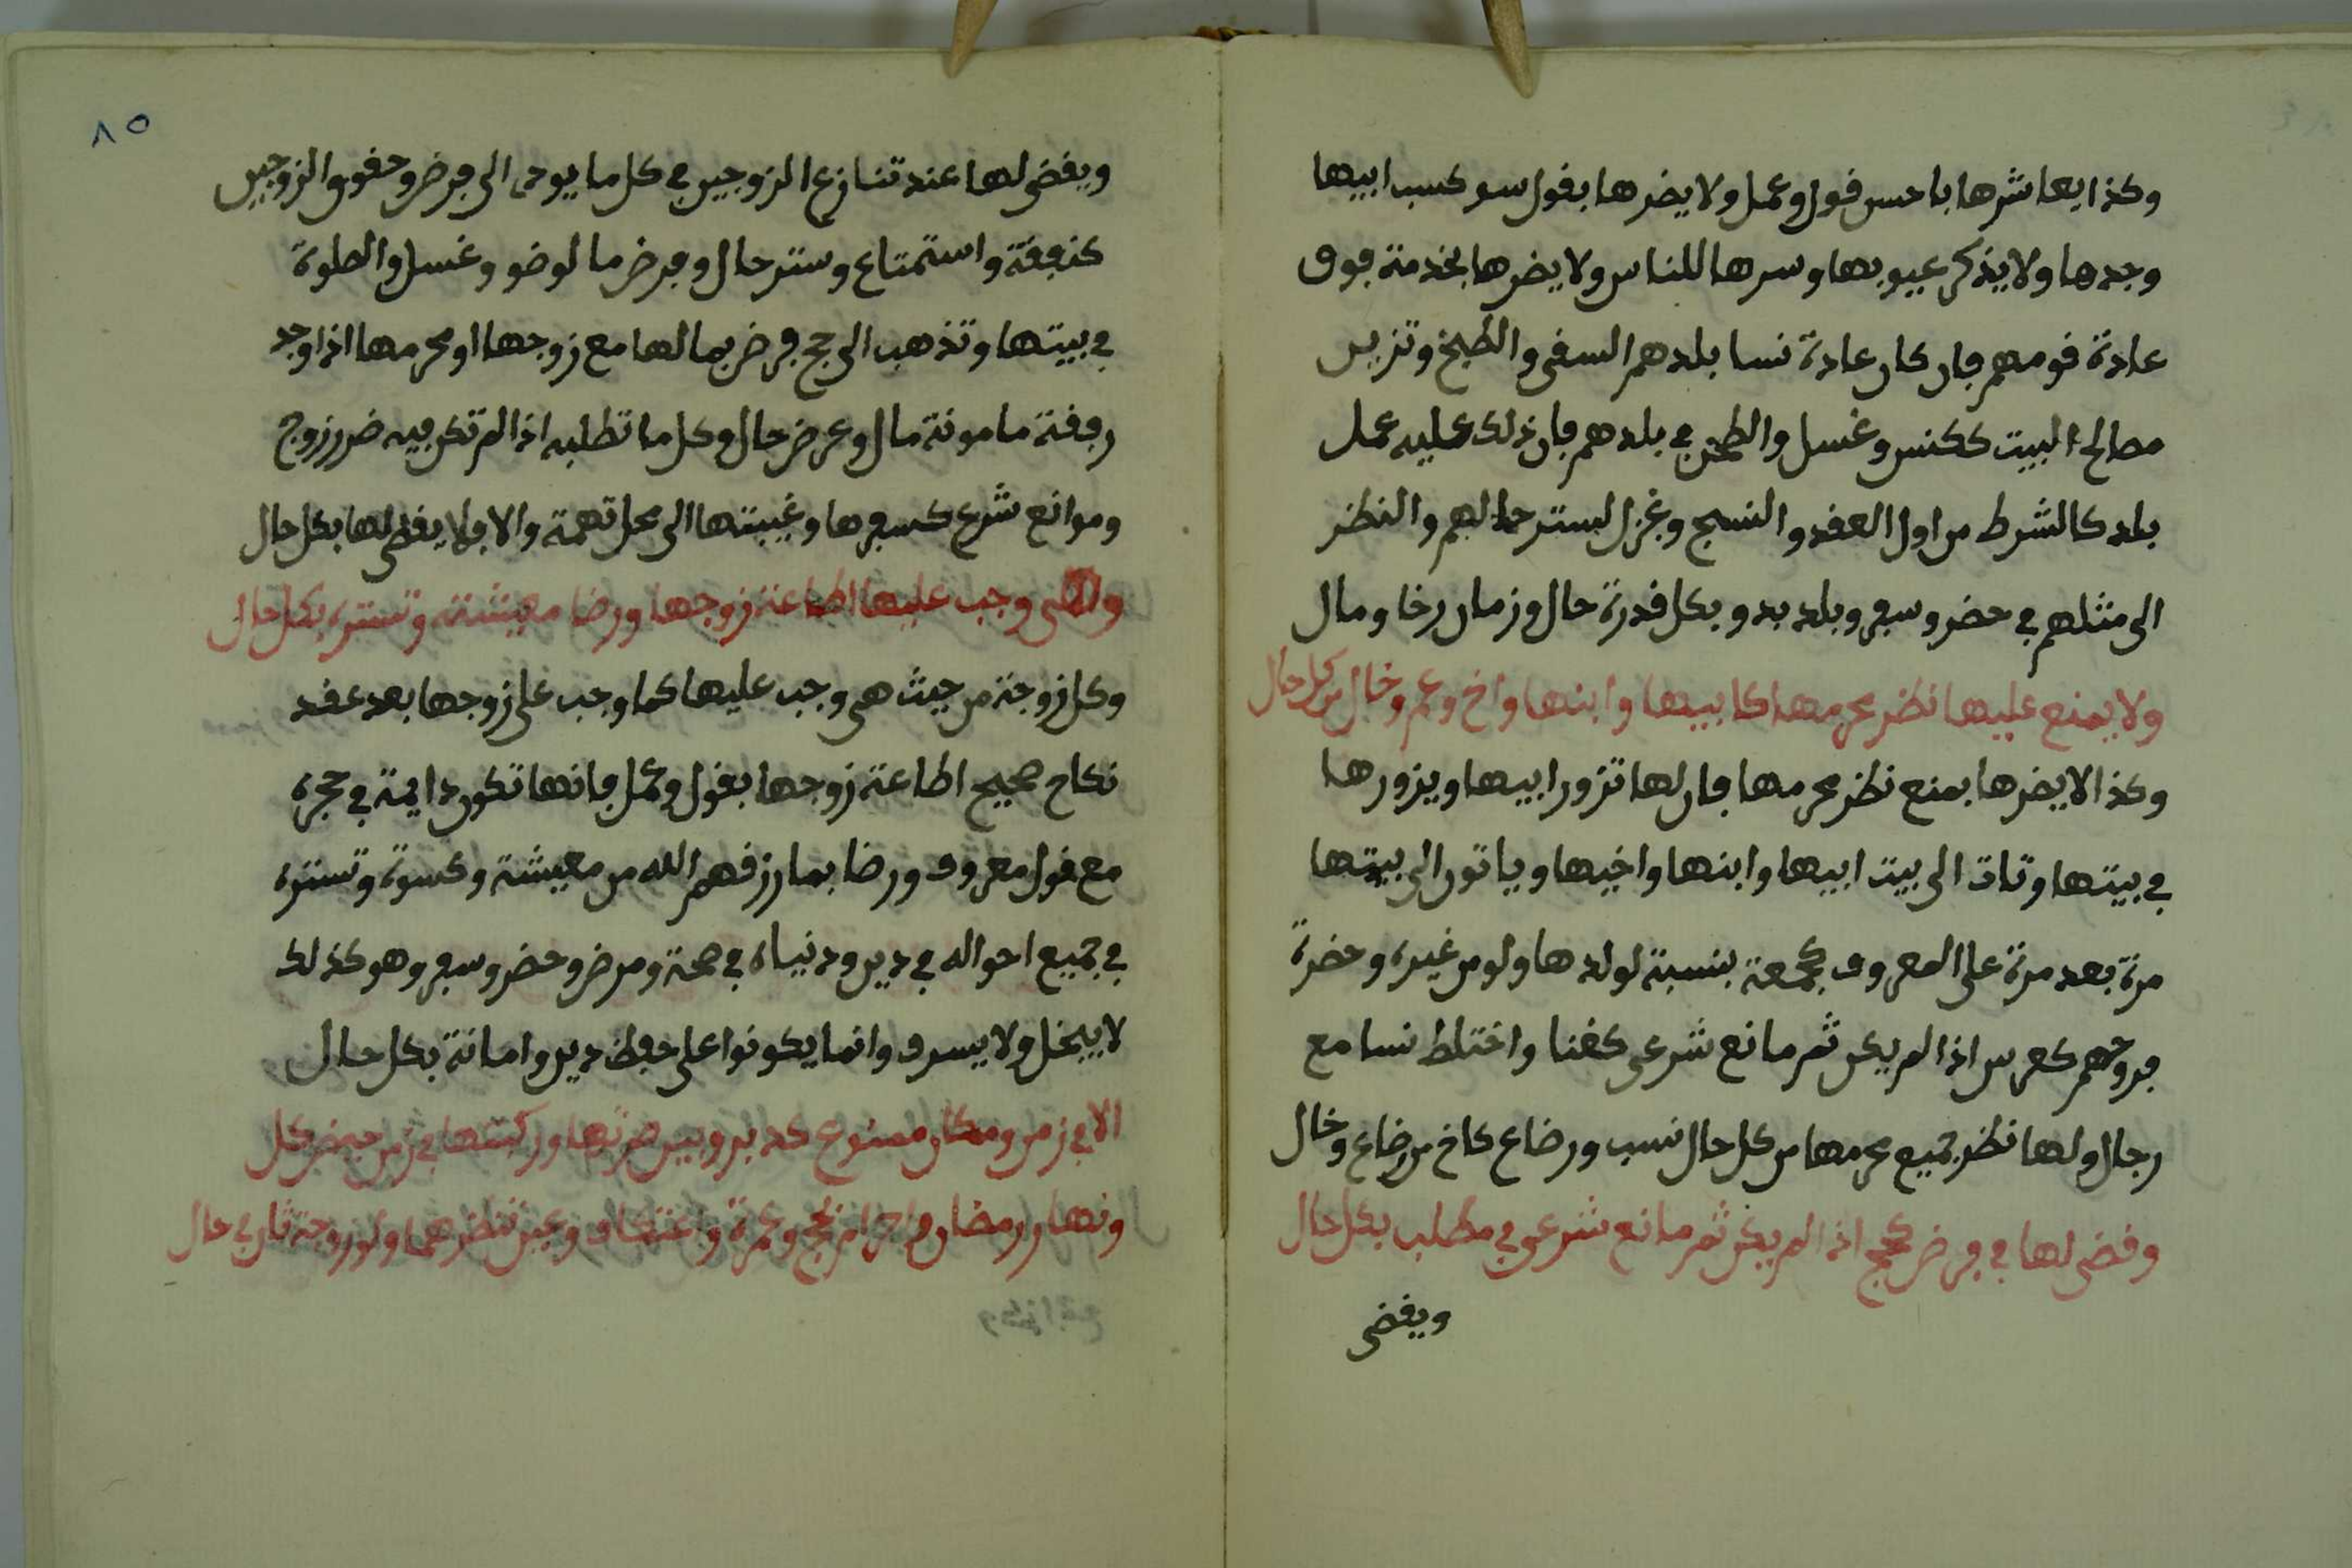 وكذا يعاشرها باحسن قول وعمل ولا يضرها بقول سو كسب ابيها
وجدها ولا يذكر عيوبها وسرها للناس ولا يضرها بخدمة فوق
عادة قومهم فان كان عادة نسا بلدهم السقي والطبخ وتزين
مصالح البيت ككنس وغسل والطحن في بلدهم فان ذلك عليه عمل
بلد كالشرط من اول العقد والنسج وغزل لستر حالهم والنظر
الى مثلهم في حضر وسفر وبلد بدو بكل قدرة حال وزمان رخا ومال
ولا يمنع عليها نظر محرمها كابيها وابنها واخ وعم وخال من كل حال
وكذا لا يضرها بمنع نظر محرمها فان لها تزور ابيها ويزورها
في بيتها وتات الى بيت ابيها وابنها واخيها وياتون الى بيتها
مرة بعد مرة على المعروف كجمعة بنسبة لولدها ولو من غيره وحضرة
فروحهم كعرس اذا لم يكن ثم مانع شرعي كغنا واختلط نسا مع
رجال ولها نظر جميع محرمها من كل حال نسب ورضاع كاخ من رضاع وخال
وقضى لها في فرض كحج اذا لم يكن ثم مانع شرعي في مطلب بكل حال
ويقضى
٨٥
ويقضى لها عند تنازع الزوجين في كل ما يوحى الى فرض وحقوق الزوجين
كنفقة واستمتاع وستر حال وفرض ما لوضو وغسل والصلوة
في بيتها وتذهب الى حج فرض بمالها مع زوجها او محرمها اذا وجد
رفقة مامونة مال وعرض حال وكل ما تطلبه اذا لم تكن فيه ضرر زوج
وموانع شرع كسفرها وغيبتها الى محل تهمة والا فلا يقضى لها بكل حال
وجب عليها اطاعة زوجها ورضا معيشته وتستره بكل حال
وكل زوجة من حيث هي وجب عليها كما وجب على زوجها بعد عقد
نكاح صحيح اطاعة زوجها بقول وعمل فانها تكون دايمة في حجره
مع قول معروف ورضا بما رزقهم الله من معيشة وكسوة وتستره
في جميع احواله في دين ودنياه في صحة ومرض وحضر وسفر وهو كذلك
لا يبخل ولا يسرف وانما يكونوا على حفظ دين وامانة بكل حال
الا في زمن ومكان ممنوع كدبر وبين صرتها وركبتها في زمن حيض كل
ونهار رمضان واحرام لحج وعمرة واعتكاف وعين تنظرهما ولو زوجة ثان حال